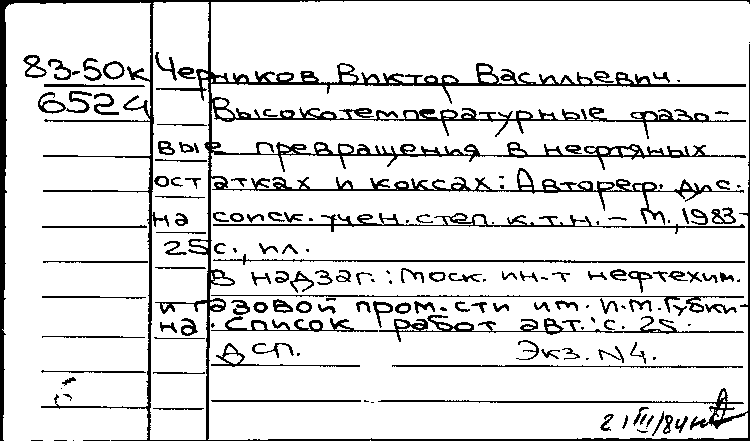 83-50к Черников, Виктор Васильевич.
6524 Высокотемпературные фазо-
вые превращения в нефтяных
остатках и коксах: Автореф. дис.
на соиск. учен. степ. к.т.н. – М., 1983.-
25 с., ил.
В надзаг.: Моск. ин-т нефтехим.
и газовой пром.сти им. И.М.Губки-
на. Список работ авт.: с. 25.
ДСП. Экз. N4.
21/III/84